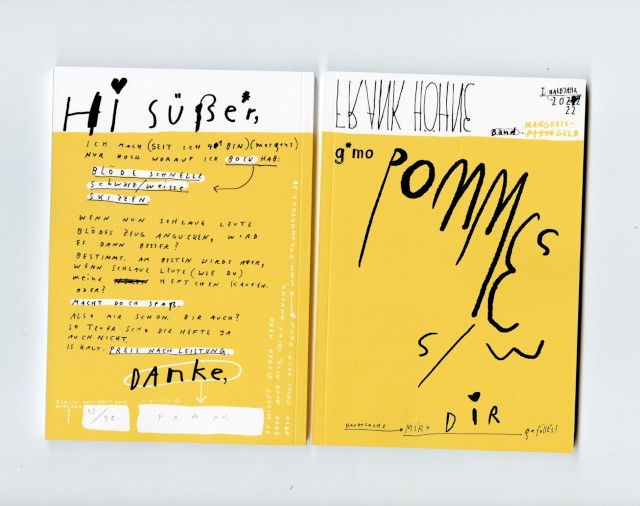 Hi SÜßer,
ICH MACH (SEIT ICH 40 BIN) (morgens)
NUR NOCH WORAUF ICH BOCK HAB:
BLÖDE SCHNELLE
schwarz/weisse
SKIZZEN.
WENN NUN SCHLAUE LEUTE
BLÖDES ZEUG ANGUCKEN, WIRD
ES DANN BESSER?
BESTIMMT. AM BESTEN WIRDS ABER,
WENN SCHLAUE LEUTE (WIE DU)
meine HEFTCHEN KAUFEN.
ODER?
MACHT DOCH SPAß.
ALSO MIR SCHON. DIR AUCH?
SO TEUER SIND DIE HEFTE JA
AUCH NICHT.
IS HALT: PREIS NACH LEISTUNG.
DANKE,
FRANK
FRANK HÖHNE
I. HALBJAHR
22
Band.
MANGOEIS-
GELB
g*mo
POMMES
S/W
HAUPTSACHE MIR+ DIR g*fällts!